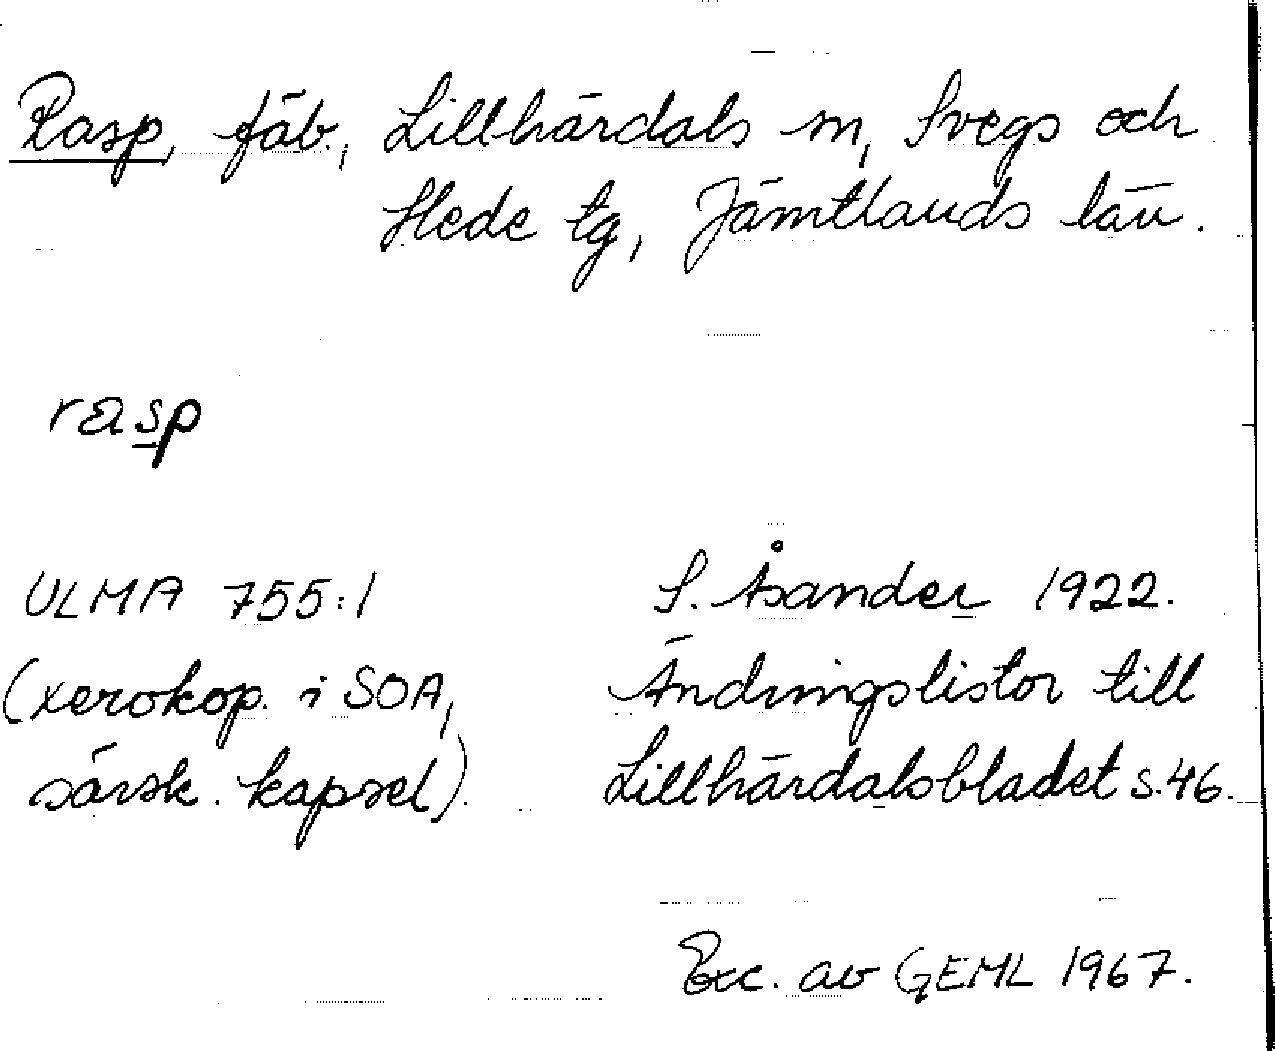 Rasp, fäb., Lillhärdals sn, Svegs och
Hede tg, Jämtlands län.
rasp
ULMA 755:1 S. Åsander 1922.
(xerokop. i SOA, Ändringslistor till
särsk. kapsel). Lillhärdalsbladet s.46.
Exc. av GEML 1967.